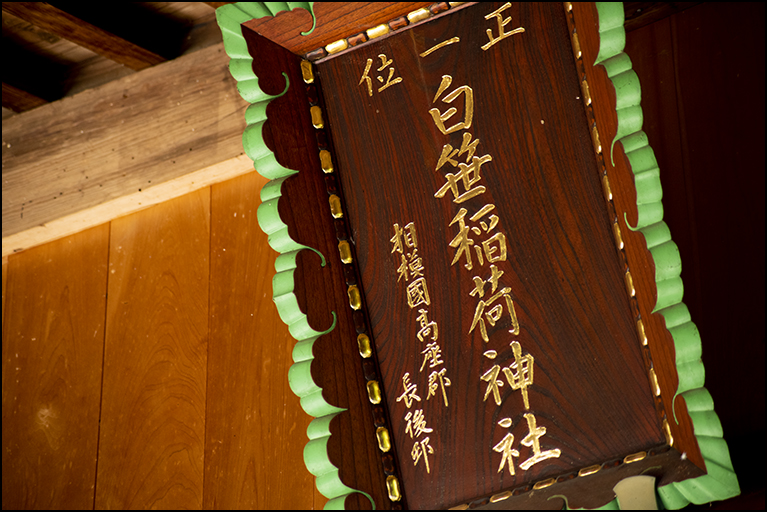 正一位
白笹稲荷神社
相模國高座郡
長後邨